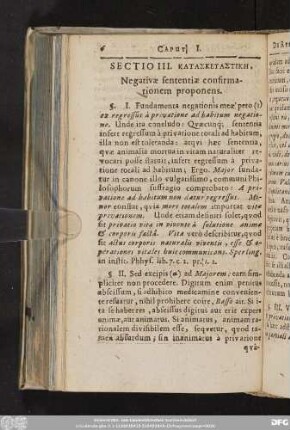 6 CAPUT I.
SECTIO III. ΚΑΤΑΣΚΕΥΑΣΤΙΚΗ,
Negativæ sententiæ confirma-
tionem proponens.
§. I. Fundamenta negationis meæ peto (1)
ex regressûs à privatione ad habitum negatio-
ne. Unde ita concludo: Quæcunq; sententia
infert regressum à privatione totali ad habitum,
illa non est toleranda: atqui hæc sententia,
quæ animalia mortua in vitam naturaliter re-
vocari posse statuit, infert regressum à priva-
tione totali ad habitum, Ergo. Major funda-
tur in canone illo vulgatissimo, communi Phi-
losophorum suffragio comprobato: A pri-
vatione ad habitum non datur regressus. Mi-
nor constat, quia mors totalem importat vitæ
privationem. Unde etiam definiri solet, quod
sit privatio vitæ in vivente à solutione animæ
& corporis facta. Vita verò describitur, quod
sit actus corporis naturalis viventis, esse &
operationes vitales huic communicans. Sperling.
in instit. Phys. lib. 7. c. 1. pr. 1.
§. II. Sed excipis (α) ad Majorem, eam sim-
pliciter non procedere. Digitum enim penitus
abscissum, si adhibito medicamine convenien-
te restituatur, nihil prohibere coire, Basso ait. Si i-
ta se haberet, abscissus digitus aut erit expers
animæ, aut animatus. Si animatus, animam ra-
tionalem divisibilem esse, sequetur, quod ta-
men absurdum; sin inanimatus à privatione
quâ-